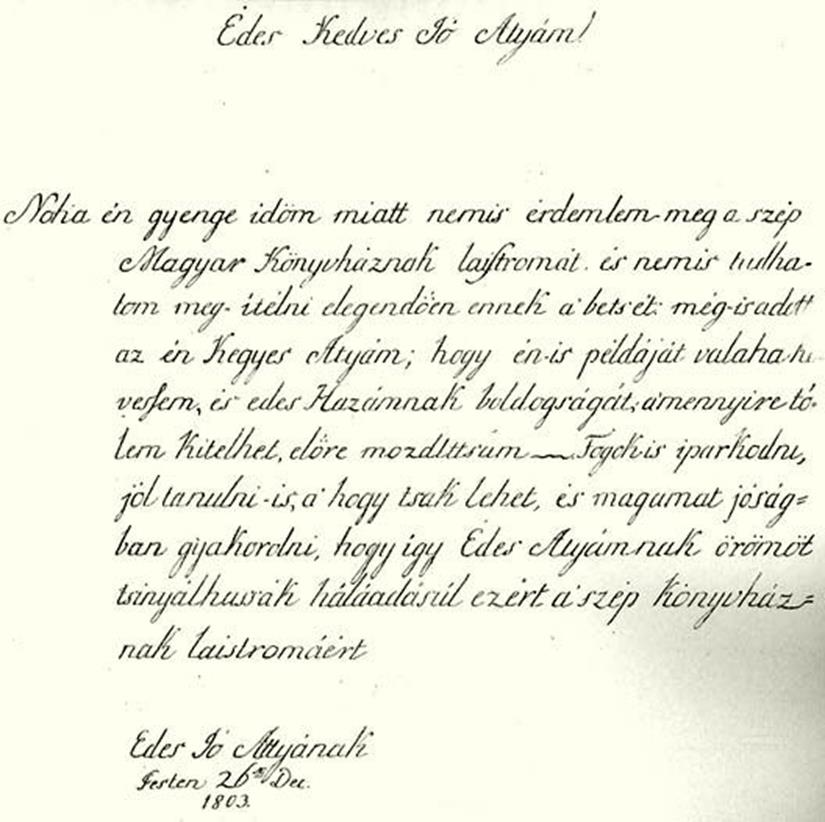 Édes Kedves Jó Atyám!
Noha én gyenge idöm miatt nemis érdemlem-meg a szép
Magyar Könyvháznak laistromát. és nemis tudha-
tom meg-itélni elegendöen ennek a' betsét: még-is adott
az én Kegyes Atyám; hogy én-is példáját valaha
vessem, és édes Hazámnak boldogságát, a'mennyire tő-
lem Kitelhet, előre mozdittsam — Fogok-is iparkodni,
jól tanulni-is, a' hogy tsak lehet, és magamat jóság=
ban gyakorolni, hogy így Édes Atyámnak örömöt
tsinyálhussák háláadásúl ezért a' szép Könyvház=
nak laistromáért
Édes Jó Attyának
Pesten 26 Dec.
1803.